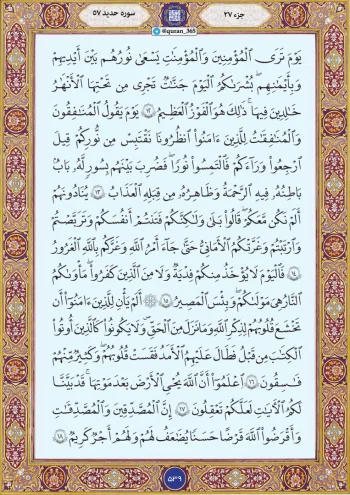 سوره حدید ۵۷
جزء ۲۷
@quran_365
يَوْمَ تَرَى الْمُؤْمِنِينَ وَالْمُؤْمِنَاتِ يَسْعَىٰ نُورُهُم بَيْنَ أَيْدِيهِمْ
وَبِأَيْمَانِهِم بُشْرَاكُمُ الْيَوْمَ جَنَّاتٌ تَجْرِي مِن تَحْتِهَا الْأَنْهَارُ
خَالِدِينَ فِيهَا ۚ ذَٰلِكَ هُوَ الْفَوْزُ الْعَظِيمُ ﴿١٢﴾ يَوْمَ يَقُولُ الْمُنَافِقُونَ
وَالْمُنَافِقَاتُ لِلَّذِينَ آمَنُوا انظُرُونَا نَقْتَبِسْ مِن نُّورِكُمْ قِيلَ
ارْجِعُوا وَرَاءَكُمْ فَالْتَمِسُوا نُورًا فَضُرِبَ بَيْنَهُم بِسُورٍ لَّهُ بَابٌ
بَاطِنُهُ فِيهِ الرَّحْمَةُ وَظَاهِرُهُ مِن قِبَلِهِ الْعَذَابُ ﴿١٣﴾ يُنَادُونَهُمْ
أَلَمْ نَكُن مَّعَكُمْ ۖ قَالُوا بَلَىٰ وَلَٰكِنَّكُمْ فَتَنتُمْ أَنفُسَكُمْ وَتَرَبَّصْتُمْ
وَارْتَبْتُمْ وَغَرَّتْكُمُ الْأَمَانِيُّ حَتَّىٰ جَاءَ أَمْرُ اللَّهِ وَغَرَّكُم بِاللَّهِ الْغَرُورُ
﴿١٤﴾ فَالْيَوْمَ لَا يُؤْخَذُ مِنكُمْ فِدْيَةٌ وَلَا مِنَ الَّذِينَ كَفَرُوا ۚ مَأْوَاكُمُ
النَّارُ ۖ هِيَ مَوْلَاكُمْ ۖ وَبِئْسَ الْمَصِيرُ ﴿١٥﴾ ۞ أَلَمْ يَأْنِ لِلَّذِينَ آمَنُوا أَن
تَخْشَعَ قُلُوبُهُمْ لِذِكْرِ اللَّهِ وَمَا نَزَلَ مِنَ الْحَقِّ وَلَا يَكُونُوا كَالَّذِينَ أُوتُوا
الْكِتَابَ مِن قَبْلُ فَطَالَ عَلَيْهِمُ الْأَمَدُ فَقَسَتْ قُلُوبُهُمْ ۖ وَكَثِيرٌ مِّنْهُمْ
فَاسِقُونَ ﴿١٦﴾ اعْلَمُوا أَنَّ اللَّهَ يُحْيِي الْأَرْضَ بَعْدَ مَوْتِهَا ۚ قَدْ بَيَّنَّا
لَكُمُ الْآيَاتِ لَعَلَّكُمْ تَعْقِلُونَ ﴿١٧﴾ إِنَّ الْمُصَّدِّقِينَ وَالْمُصَّدِّقَاتِ
وَأَقْرَضُوا اللَّهَ قَرْضًا حَسَنًا يُضَاعَفُ لَهُمْ وَلَهُمْ أَجْرٌ كَرِيمٌ ﴿١٨﴾
۵۳۹